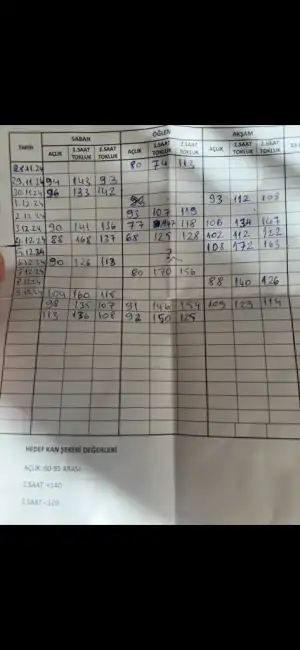 TARİH SABAH ÖĞLEN AKŞAM
AÇLIK 1.SAAT TOKLUK 2.SAAT TOKLUK AÇLIK 1.SAAT TOKLUK 2.SAAT TOKLUK AÇLIK 1.SAAT TOKLUK 2.SAAT TOKLUK
28.11.24 80 74 113
29.11.24 94 143 93
30.11.24 96 133 142
1.12.24 93 112 108
2.12.24 93 107 119
3.12.24 90 141 136 77 147 118 106 134 167
4.12.24 88 168 137 68 125 128 102 112 122
5.12.24 ? 103 172 163
6.12.24 90 126 113
7.12.24 80 170 156
8.12.24 88 140 126
9.12.24 104 160 115
98 135 107 91 146 154 109 129 114
113 136 108 92 150 125
HEDEF KAN ŞEKERİ DEĞERLERİ
AÇLIK :60-95 ARASI
1.SAAT <140
2.SAAT <120